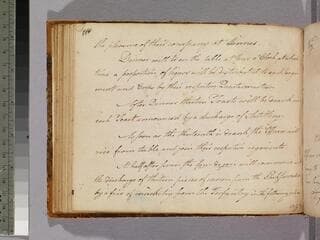 the pleasure of their company at Dinner.
Dinner will be on the table at four o'Clock at which
time a proportion of liquor will be distributed to each regi-
ment and Corps by their respective Quartermasters.
After Dinner thirteen Toasts will be drank
each Toast announced by a discharge of Artillery.
As soon as the thirteenth is drank the Officers will
rise from table and join their respective regiments
At half after seven the feu de joie will commence with
the discharge of thirteen pieces of cannon from the
by a fire of musketry from the Infantry in the following order